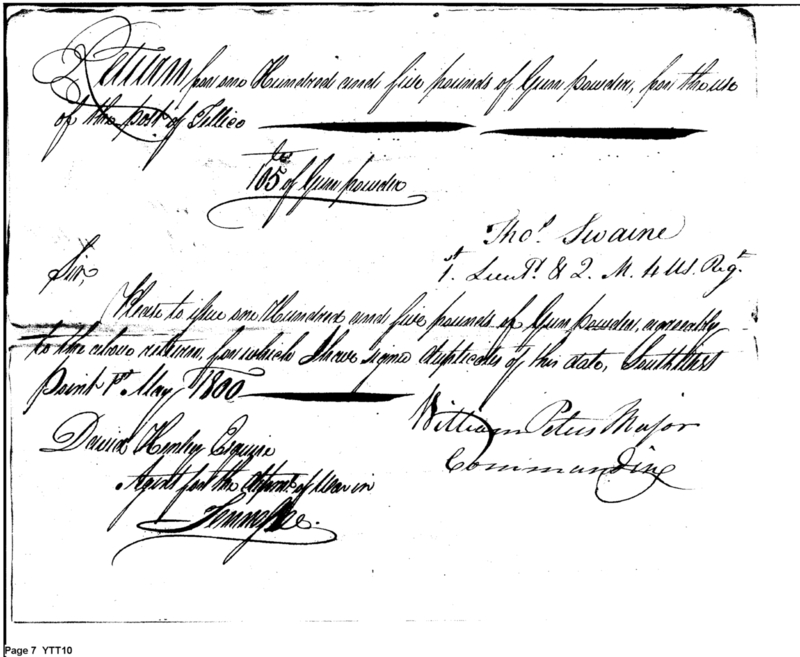 Return for one Hundred and five pounds of Gun powder, for the use
of the post of Tellico
105 lbs of Gun powder
Thos. Swaine
1st. Lieut. & Q. M. 4 US. Regt.
Sir,
Please to issue one Hundred and five pounds of Gun powder, agreeably
to the above return, for which I have signed duplicates of this date, South West
point 1st May 1800
William Peters Major
Commanding
David Henley Esquire
Agent for the Departmt. of War in
Tennessee.
Page 7 YTT10